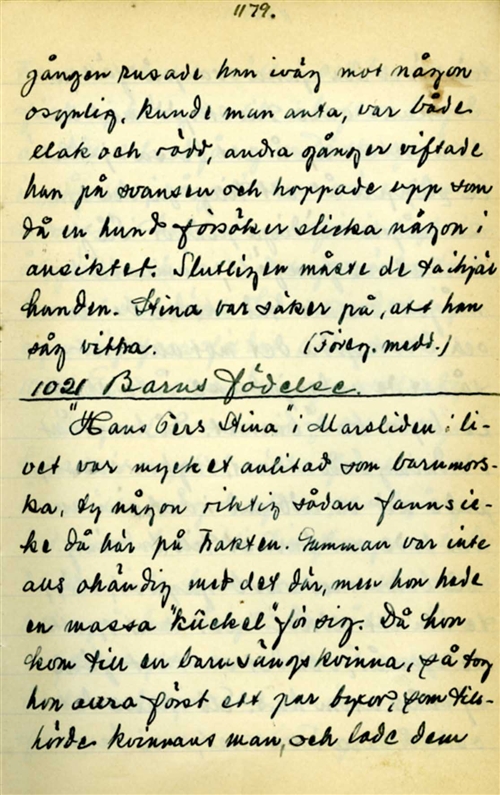 1179.
gången rusade han iväg mot någon
osynlig, kunde man anta, var både
elak och rädd, andra gånger viftade
han på svansen och hoppade upp som
då en hund försöker slicka någon i
ansiktet. Slutligen måste de ta ihjäl
hunden. Stina var säker på, att han
såg vittra. (Föreg. medd.)
1021 Barns födelse.
"Hans Pers Stina" i Marsliden i li-
vet var mycket anlitad som barnmors-
ka, ty någon riktig sådan fanns ic-
ke då här på trakten. Gumman var inte
alls ohändig med det där, men hon hade
en massa "kückel" för sig. Då hon
kom till en barnsängskvinna, så tog
hon allra först ett par byxor, som till-
hörde kvinnans man, och lade dem